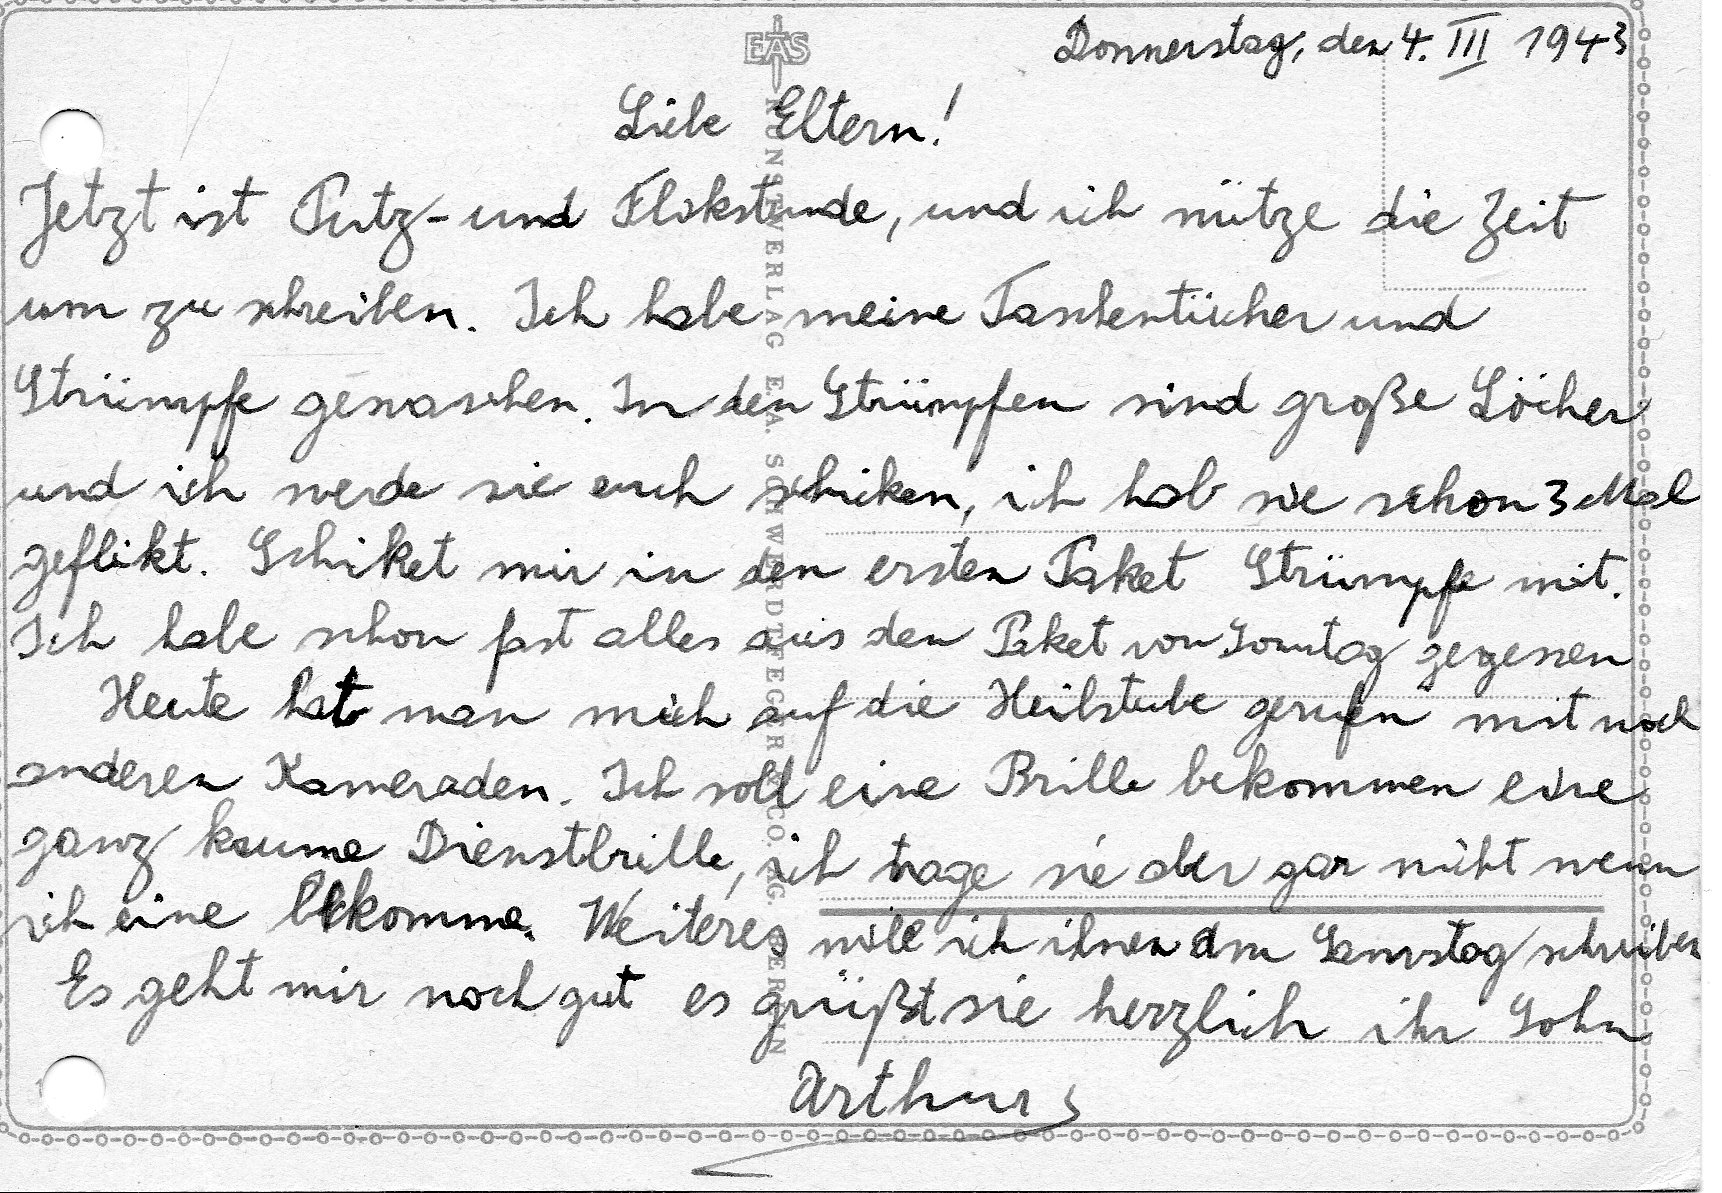 EAS
KUNSTVERLAG E.A. SCHWERDTFEGER & CO. AG. BERLIN
Donnerstag, den 4. III 1943
Liebe Eltern!
Jetzt ist Putz- und Flikstunde, und ich nütze die Zeit
um zu schreiben. Ich habe meine Taschentücher und
Strümpfe gewaschen. In den Strümpfen sind große Löcher
und ich werde sie euch schicken, ich hab sie schon 3 Mal
geflikt. Schiket mir in den ersten Paket Strümpfe mit.
Ich habe schon fast alles aus den Paket von Sonntag gegessen
Heute hat man mich auf die Heilstube gerufen mit noch
anderen Kameraden. Ich soll eine Brille bekommen eine
ganz Dienstbrille, ich trage sie aber gar nicht wenn
ich eine bekomme. Weiteres will ich ihnen am Samstag schreiben
Es geht mir noch gut es grüßt sie herzlich ihr Sohn
Arthur